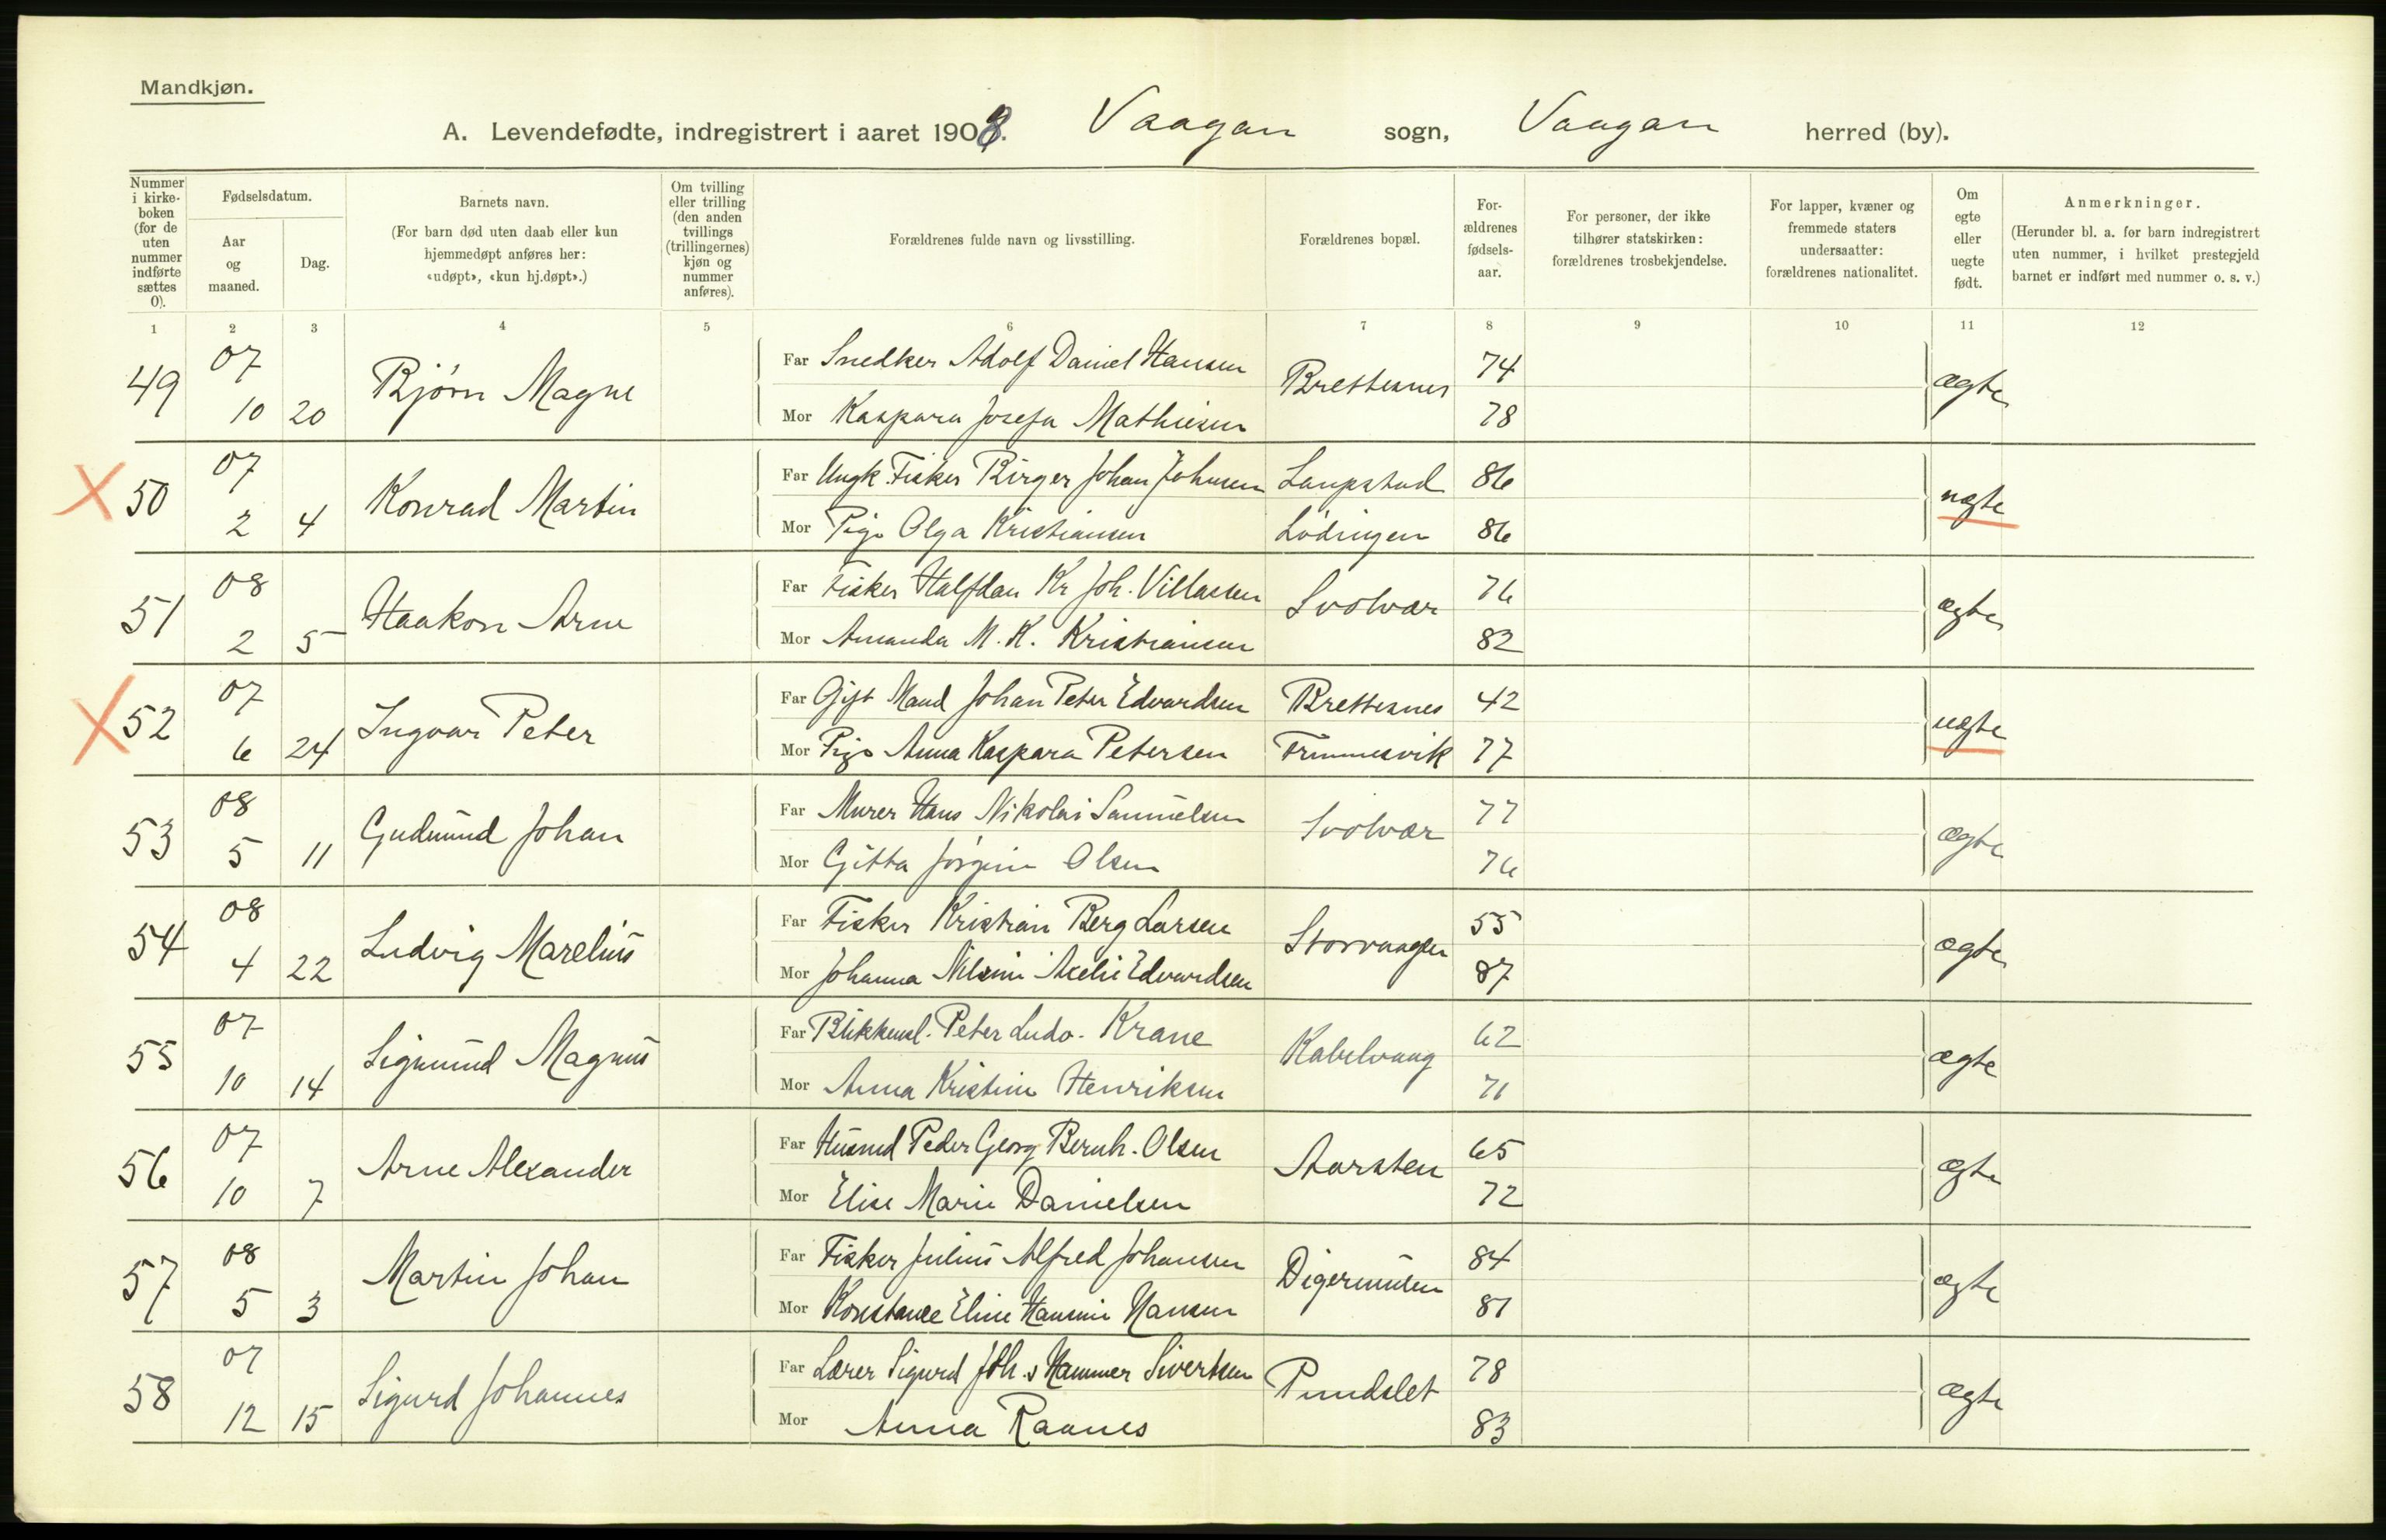 Mandkjøn.
A. Levendefødte, indregistrert i aaret 1908. Vaagan sogn, Vaagan herred (by).
Nummer i kirke-boken (for de uten nummer indførte sættes 0).
Fødselsdatum.
Aar og maaned.
Dag.
Barnets navn.
(For barn død uten daab eller kun hjemmedøpt anføres her: «udøpt», «kun hj.døpt».)
Om tvilling eller trilling (den anden tvillings (trillingernes) kjøn og nummer anføres).
Forældrenes fulde navn og livsstilling.
Forældrenes bopæl.
For-ældrenes fødsels-aar.
For personer, der ikke tilhører statskirken: forældrenes trosbekjendelse.
For lapper, kvæner og fremmede staters undersaatter: forældrenes nationalitet.
Om egte eller uegte født.
Anmerkninger.
(Herunder bl. a. for barn indregistrert uten nummer, i hvilket prestegjeld barnet er indført med nummer o. s. v.)
1 2 3 4 5 6 7 8 9 10 11 12
49 07 10 20 Bjørn Magne Far Snedker Adolf Daniel Hansen Brettesnes 74 ægte
Mor Kaspara Josefa Mathiesen 78
X 50 07 2 4 Konrad Martin Far Ungk. Fisker Birger Johan Johnsen Laupstad 86 uægte
Mor Pige Olga Kristiansen Lödingen 86
51 08 2 5 Haakon Arne Far Fisker Halfdan Kr Joh. Villassen Svolvær 76 ægte
Mor Amanda M. K. Kristiansen 82
X 52 07 6 24 Ingvar Peter Far Gift Mand Johan Peter Edvardsen Brettesnes 42 uægte
Mor Pige Anna Kaspara Petersen 77
53 08 5 11 Gudmund Johan Far Murer Hans Nikolai Samuelsen Svolvær 77 ægte
Mor Gitta Jørgine Olsen 76
54 08 4 22 Ludvig Marelius Far Fisker Kristian Berg Larsen Storvaagen 55 ægte
Mor Johanna Edvardsen 87
55 07 10 14 Sigmund Magnus Far Blikkensl. Peter Ludv. Krane Kabelvaag 62 ægte
Mor Anna Kristine Henriksen 71
56 07 10 7 Arne Alexander Far Husmd Peder Georg Bernh. Olsen Aarsten 65 ægte
Mor Elise Marie Danielsen 72
57 08 5 3 Martin Johan Far Fisker Julius Alfred Johansen Digermulen 84 ægte
Mor Konstance Eline Hansine Hansen 81
58 07 12 15 Sigurd Johannes Far Lærer Sigurd Joh.s Hammer Sivertsen Pundslet 78 ægte
Mor Anna Raanes 83